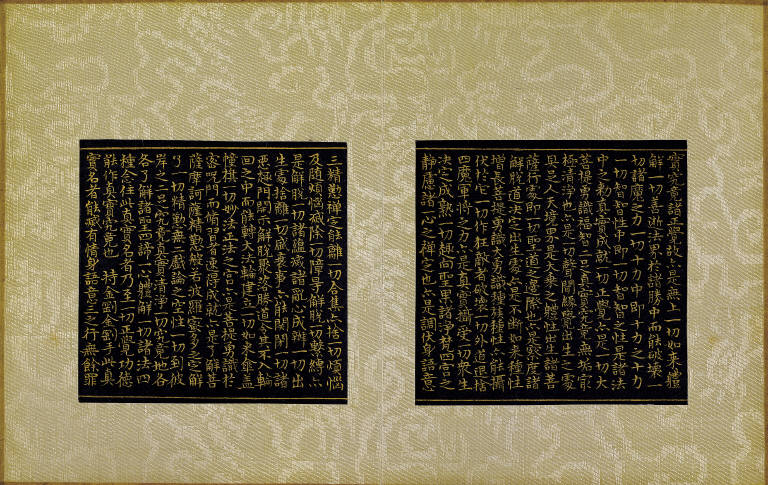 實究竟諸正覺故亦是無上一切如來體
解一切善逝上界於諸勝中而能破壞一
切諸魔之力一切十力中即十力之十力
一切智智性中即一切智智之性是諸法
中之勅真實成就一切正覺亦是一切大
菩提勇識福智二足真實究竟無垢宮
極清淨也亦是一切聲聞緣覺出生之處
具足人天境界是大乘之體性出生諸菩
薩行處即一切聖道之邊際也亦是察度諸
解脫道決之出生處亦是不斷如來種性
增長菩提勇識大勇識種族種性亦能攝
伏於他一切作狂敵者破壞一切外道退捨
四魔軍將之力亦是真實攝受一切眾生
決定成熟一切趣向聖果諸淨梵四宮之
靜慮諸一心之禪定也亦是調伏身語意
三精懃禪定能離一切合集亦捨一切煩惱
及隨煩惱滅除一切障㝵解脫一切繫縛亦
是解脫一切諸蘊滅諸亂心成辦一切出
生處捨離一切盛衰事亦能關閉一切諸
惡趣門開示解脫眾妙勝道令其不入輪
迴之中而能轉大法輪建立一切如來傘蓋
幢旗一切妙法正法之宮亦是菩提勇識於
密呪門而脩習者速得成就亦是了解菩
薩摩訶薩精勤般若波羅蜜多之定解
了一切精勤無二戲論之空性一切到彼
岸之二足究竟真實清淨一切究竟地各
各了解諸聖四諦一心體解一切諸法四
種念住此真實名者乃至一切正覺功德
能作真實究竟也　持金剛金剛手此真
實名者能滅有情身語意三之行無餘罪